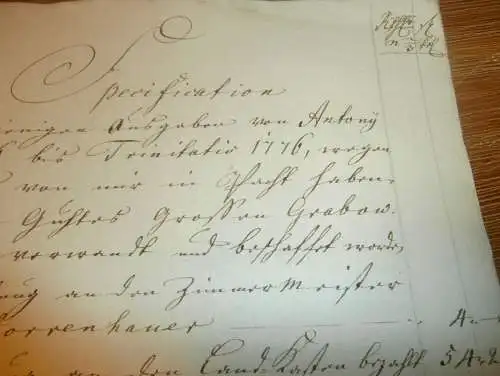 Specification
enigen Ausgaben von Antony
bis Trinitatis 1776, wegen
von mir in Pacht haben
Guhtes Grossen Grabow
verwandt und beschaffet worde
an den Zimmer Meister
orrenhauer 4
an den Land-Kasten bezahlt 54